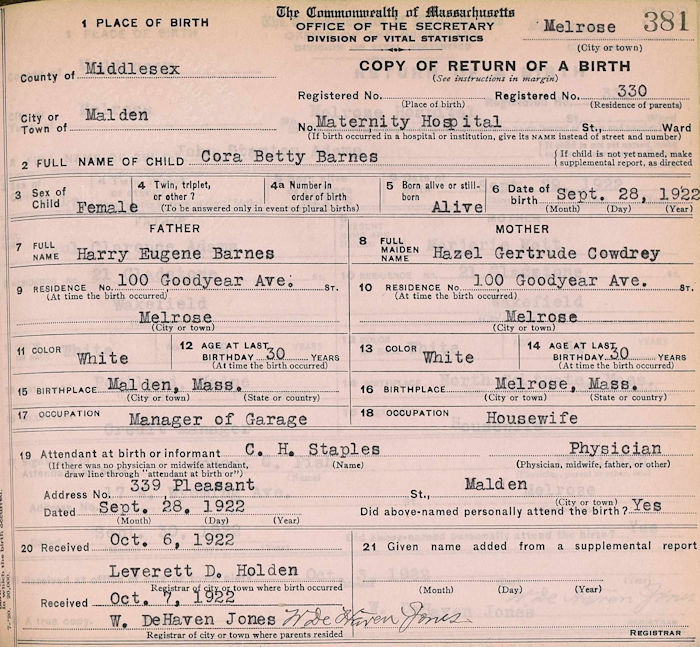 1 PLACE OF BIRTH
The Commonwealth of Massachusetts
OFFICE OF THE SECRETARY
DIVISION OF VITAL STATISTICS
Melrose 381
(City or town)
County of Middlesex
COPY OF RETURN OF A BIRTH
(See instructions in margin)
Registered No. (Place of birth) Registered No. 330 (Residence of parents)
City or Town of Malden
No. Maternity Hospital St., Ward
(If birth occurred in a hospital or institution, give its NAME instead of street and number)
2 FULL NAME OF CHILD Cora Betty Barnes
{ If child is not yet named, make supplemental report, as directed
3 Sex of Child Female
4 Twin, triplet, or other?
4a Number in order of birth
(To be answered only in event of plural births)
5 Born alive or still-born Alive
6 Date of birth Sept. 28, 1922
(Month) (Day) (Year)
FATHER
MOTHER
7 FULL NAME Harry Eugene Barnes
8 FULL MAIDEN NAME Hazel Gertrude Cowdrey
9 RESIDENCE No. 100 Goodyear Ave. ST.
(At time the birth occurred)
10 RESIDENCE No. 100 Goodyear Ave. ST.
(At time the birth occurred)
Melrose
(City or town)
Melrose
(City or town)
11 COLOR White
12 AGE AT LAST BIRTHDAY 30 YEARS
(At time the birth occurred)
13 COLOR White
14 AGE AT LAST BIRTHDAY 30 YEARS
(At time the birth occurred)
15 BIRTHPLACE Malden, Mass.
(City or town) (State or country)
16 BIRTHPLACE Melrose, Mass.
(City or town) (State or country)
17 OCCUPATION Manager of Garage
18 OCCUPATION Housewife
19 Attendant at birth or informant C. H. Staples Physician
(If there was no physician or midwife attendant, draw line through "attendant at birth or")
(Name) (Physician, midwife, father, or other)
Address No. 339 Pleasant St., Malden
(City or town)
Dated Sept. 28. 1922
(Month) (Day) (Year)
Did above-named personally attend the birth? Yes
20 Received Oct. 6, 1922
21 Given name added from a supplemental report
Leverett D. Holden
Registrar of city or town where birth occurred
Received Oct. 7, 1922
(Month) (Day) (Year)
W. DeHaven Jones W. De Haven Jones
Registrar of city or town where parents resided
REGISTRAR